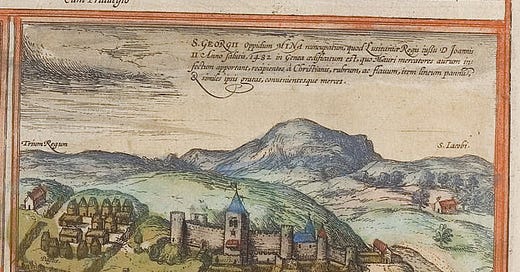 Cum Privilegio
S. GEORGII Oppidum MINA nuncupatum, quod Lusitaniæ Regis iussu D Joannis
II Anno salutis, 1482 in Genea ædificatum est, quo Mauri mercatores aurum in=
fectum apportant, recipientes, à Christianis, rubrum, ac flauum, item lineum pannũ,
& similes ipsis gratas, conuenientesque merces.
Trium Regum
S. Iacobi